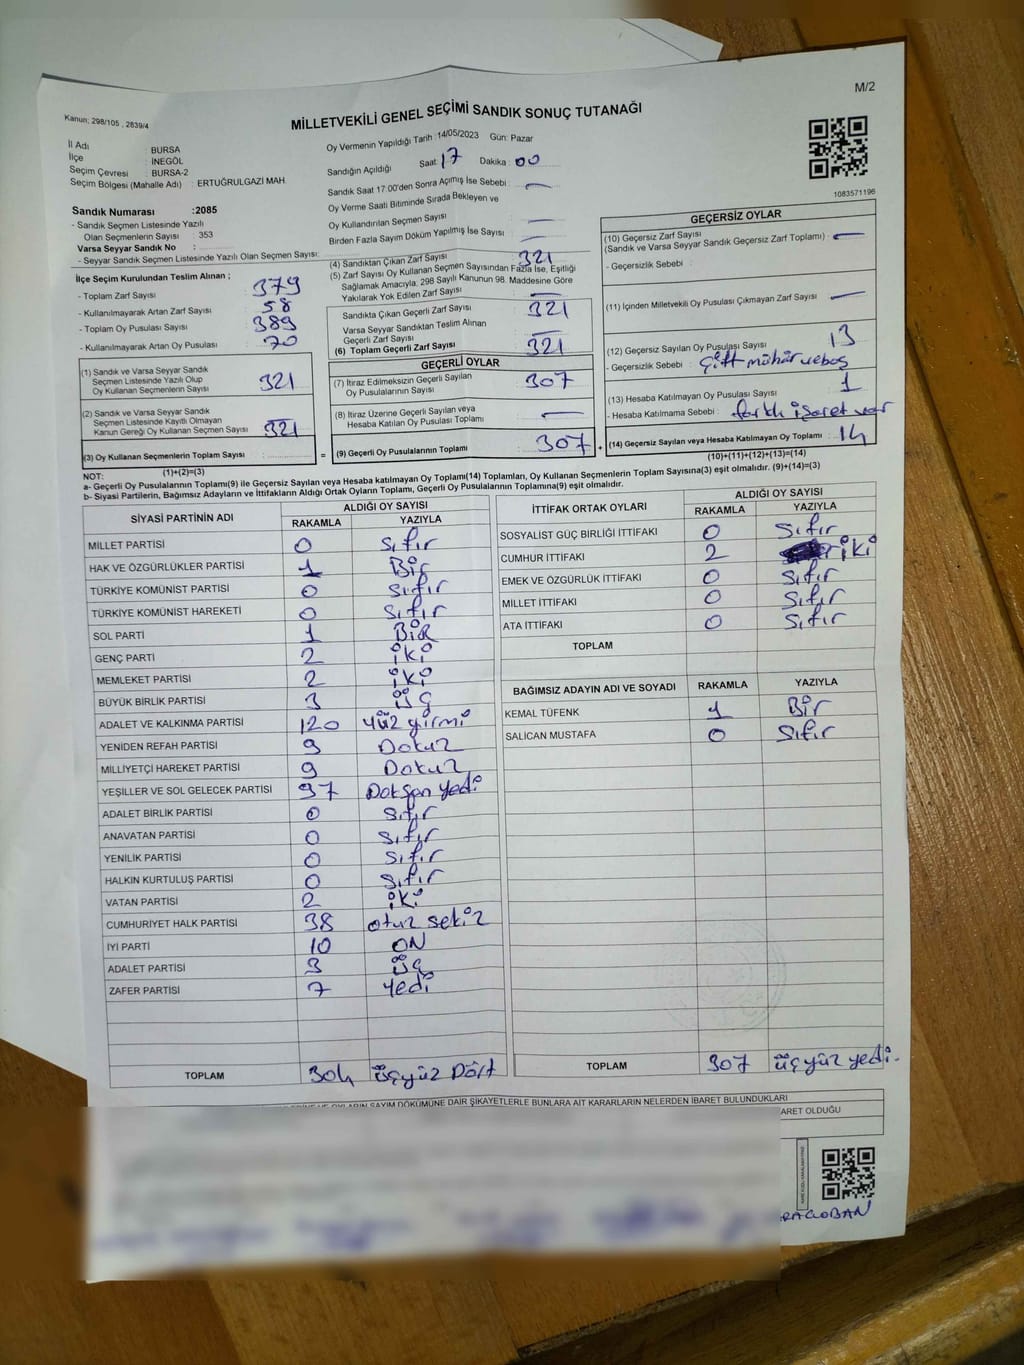 M/2
Kanun: 298/105 , 2839/4
MİLLETVEKİLİ GENEL SEÇİMİ SANDIK SONUÇ TUTANAĞI
İl Adı : BURSA
İlçe : İNEGÖL
Seçim Çevresi : BURSA-2
Seçim Bölgesi (Mahalle Adı) : ERTUĞRULGAZİ MAH.
Sandık Numarası :2085
- Sandık Seçmen Listesinde Yazılı
Olan Seçmenlerin Sayısı : 353
Varsa Seyyar Sandık No :
- Seyyar Sandık Seçmen Listesinde Yazılı Olan Seçmenlerin Sayısı:
İlçe Seçim Kurulundan Teslim Alınan ;
- Toplam Zarf Sayısı : 379
- Kullanılmayarak Artan Zarf Sayısı : 58
- Toplam Oy Pusulası Sayısı : 389
- Kullanılmayarak Artan Oy Pusulası : 70
(1) Sandık ve Varsa Seyyar Sandık
Seçmen Listesinde Yazılı Olup
Oy Kullanan Seçmenlerin Sayısı : 321
(2) Sandık ve Varsa Seyyar Sandık
Seçmen Listesinde Kayıtlı Olmayan
Kanun Gereği Oy Kullanan Seçmen Sayısı : —
(3) Oy Kullanan Seçmenlerin Toplam Sayısı : 321
(1)+(2)=(3)
Oy Vermenin Yapıldığı Tarih :14/05/2023 Gün: Pazar
Sandığın Açıldığı Saat: 17 Dakika : 00
Sandık Saat 17:00'den Sonra Açmış İse Sebebi : —
Oy Verme Saati Bitiminde Sırada Bekleyen ve
Oy Kullandırılan Seçmen Sayısı : —
Birden Fazla Sayım Döküm Yapılmış İse Sayısı : —
(4) Sandıktan Çıkan Zarf Sayısı : 321
(5) Zarf Sayısı Oy Kullanan Seçmen Sayısından Fazla İse, Eşitliği
Sağlamak Amacıyla, 298 Sayılı Kanunun 98. Maddesine Göre
Yakılarak Yok Edilen Zarf Sayısı : —
Sandıkta Çıkan Geçerli Zarf Sayısı : 321
Varsa Seyyar Sandıktan Teslim Alınan
Geçerli Zarf Sayısı : —
(6) Toplam Geçerli Zarf Sayısı : 321
GEÇERLİ OYLAR
(7) İtiraz Edilmeksizin Geçerli Sayılan
Oy Pusulalarının Sayısı : 307
(8) İtiraz Üzerine Geçerli Sayılan veya
Hesaba Katılan Oy Pusulası Toplamı : —
= (9) Geçerli Oy Pusulalarının Toplamı : 307 +
1083571196
GEÇERSİZ OYLAR
(10) Geçersiz Zarf Sayısı
(Sandık ve Varsa Seyyar Sandık Geçersiz Zarf Toplamı) : —
- Geçersizlik Sebebi :
(11) İçinden Milletvekili Oy Pusulası Çıkmayan Zarf Sayısı : —
(12) Geçersiz Sayılan Oy Pusulası Sayısı : 13
- Geçersizlik Sebebi : Çift mühür ve boş
(13) Hesaba Katılmayan Oy Pusulası Sayısı : 1
- Hesaba Katılmama Sebebi : farklı işaret var
(14) Geçersiz Sayılan veya Hesaba Katılmayan Oy Toplamı : 14
(10)+(11)+(12)+(13)=(14)
NOT:
a- Geçerli Oy Pusulalarının Toplamı(9) ile Geçersiz Sayılan veya Hesaba katılmayan Oy Toplamı(14) Toplamları, Oy Kullanan Seçmenlerin Toplam Sayısına(3) eşit olmalıdır. (9)+(14)=(3)
b- Siyasi Partilerin, Bağımsız Adayların ve İttifakların Aldığı Ortak Oyların Toplamı, Geçerli Oy Pusulalarının Toplamına(9) eşit olmalıdır.
SİYASİ PARTİNİN ADI ALDIĞI OY SAYISI
RAKAMLA YAZIYLA
MİLLET PARTİSİ 0 Sıfır
HAK VE ÖZGÜRLÜKLER PARTİSİ 1 Bir
TÜRKİYE KOMÜNİST PARTİSİ 0 Sıfır
TÜRKİYE KOMÜNİST HAREKETİ 0 Sıfır
SOL PARTİ 1 BİR
GENÇ PARTİ 2 iki
MEMLEKET PARTİSİ 2 iki
BÜYÜK BİRLİK PARTİSİ 3 üç
ADALET VE KALKINMA PARTİSİ 120 yüz yirmi
YENİDEN REFAH PARTİSİ 9 Dokuz
MİLLİYETÇİ HAREKET PARTİSİ 9 Dokuz
YEŞİLLER VE SOL GELECEK PARTİSİ 97 Doksan yedi
ADALET BİRLİK PARTİSİ 0 Sıfır
ANAVATAN PARTİSİ 0 Sıfır
YENİLİK PARTİSİ 0 Sıfır
HALKIN KURTULUŞ PARTİSİ 0 Sıfır
VATAN PARTİSİ 2 iki
CUMHURİYET HALK PARTİSİ 38 otuz sekiz
İYİ PARTİ 10 ON
ADALET PARTİSİ 3 üç
ZAFER PARTİSİ 7 yedi
TOPLAM 304 üçyüz Dört
İTTİFAK ORTAK OYLARI ALDIĞI OY SAYISI
RAKAMLA YAZIYLA
SOSYALİST GÜÇ BİRLİĞİ İTTİFAKI 0 Sıfır
CUMHUR İTTİFAKI 2 iki
EMEK VE ÖZGÜRLÜK İTTİFAKI 0 Sıfır
MİLLET İTTİFAKI 0 Sıfır
ATA İTTİFAKI 0 Sıfır
TOPLAM
BAĞIMSIZ ADAYIN ADI VE SOYADI RAKAMLA YAZIYLA
KEMAL TÜFENK 1 Bir
SALİCAN MUSTAFA 0 Sıfır
TOPLAM 307 üçyüz yedi.
OYLARIN SAYIM DÖKÜMÜNE DAİR ŞİKAYETLERLE BUNLARA AİT KARARLARIN NELERDEN İBARET BULUNDUKLARI
ARET OLDUĞU